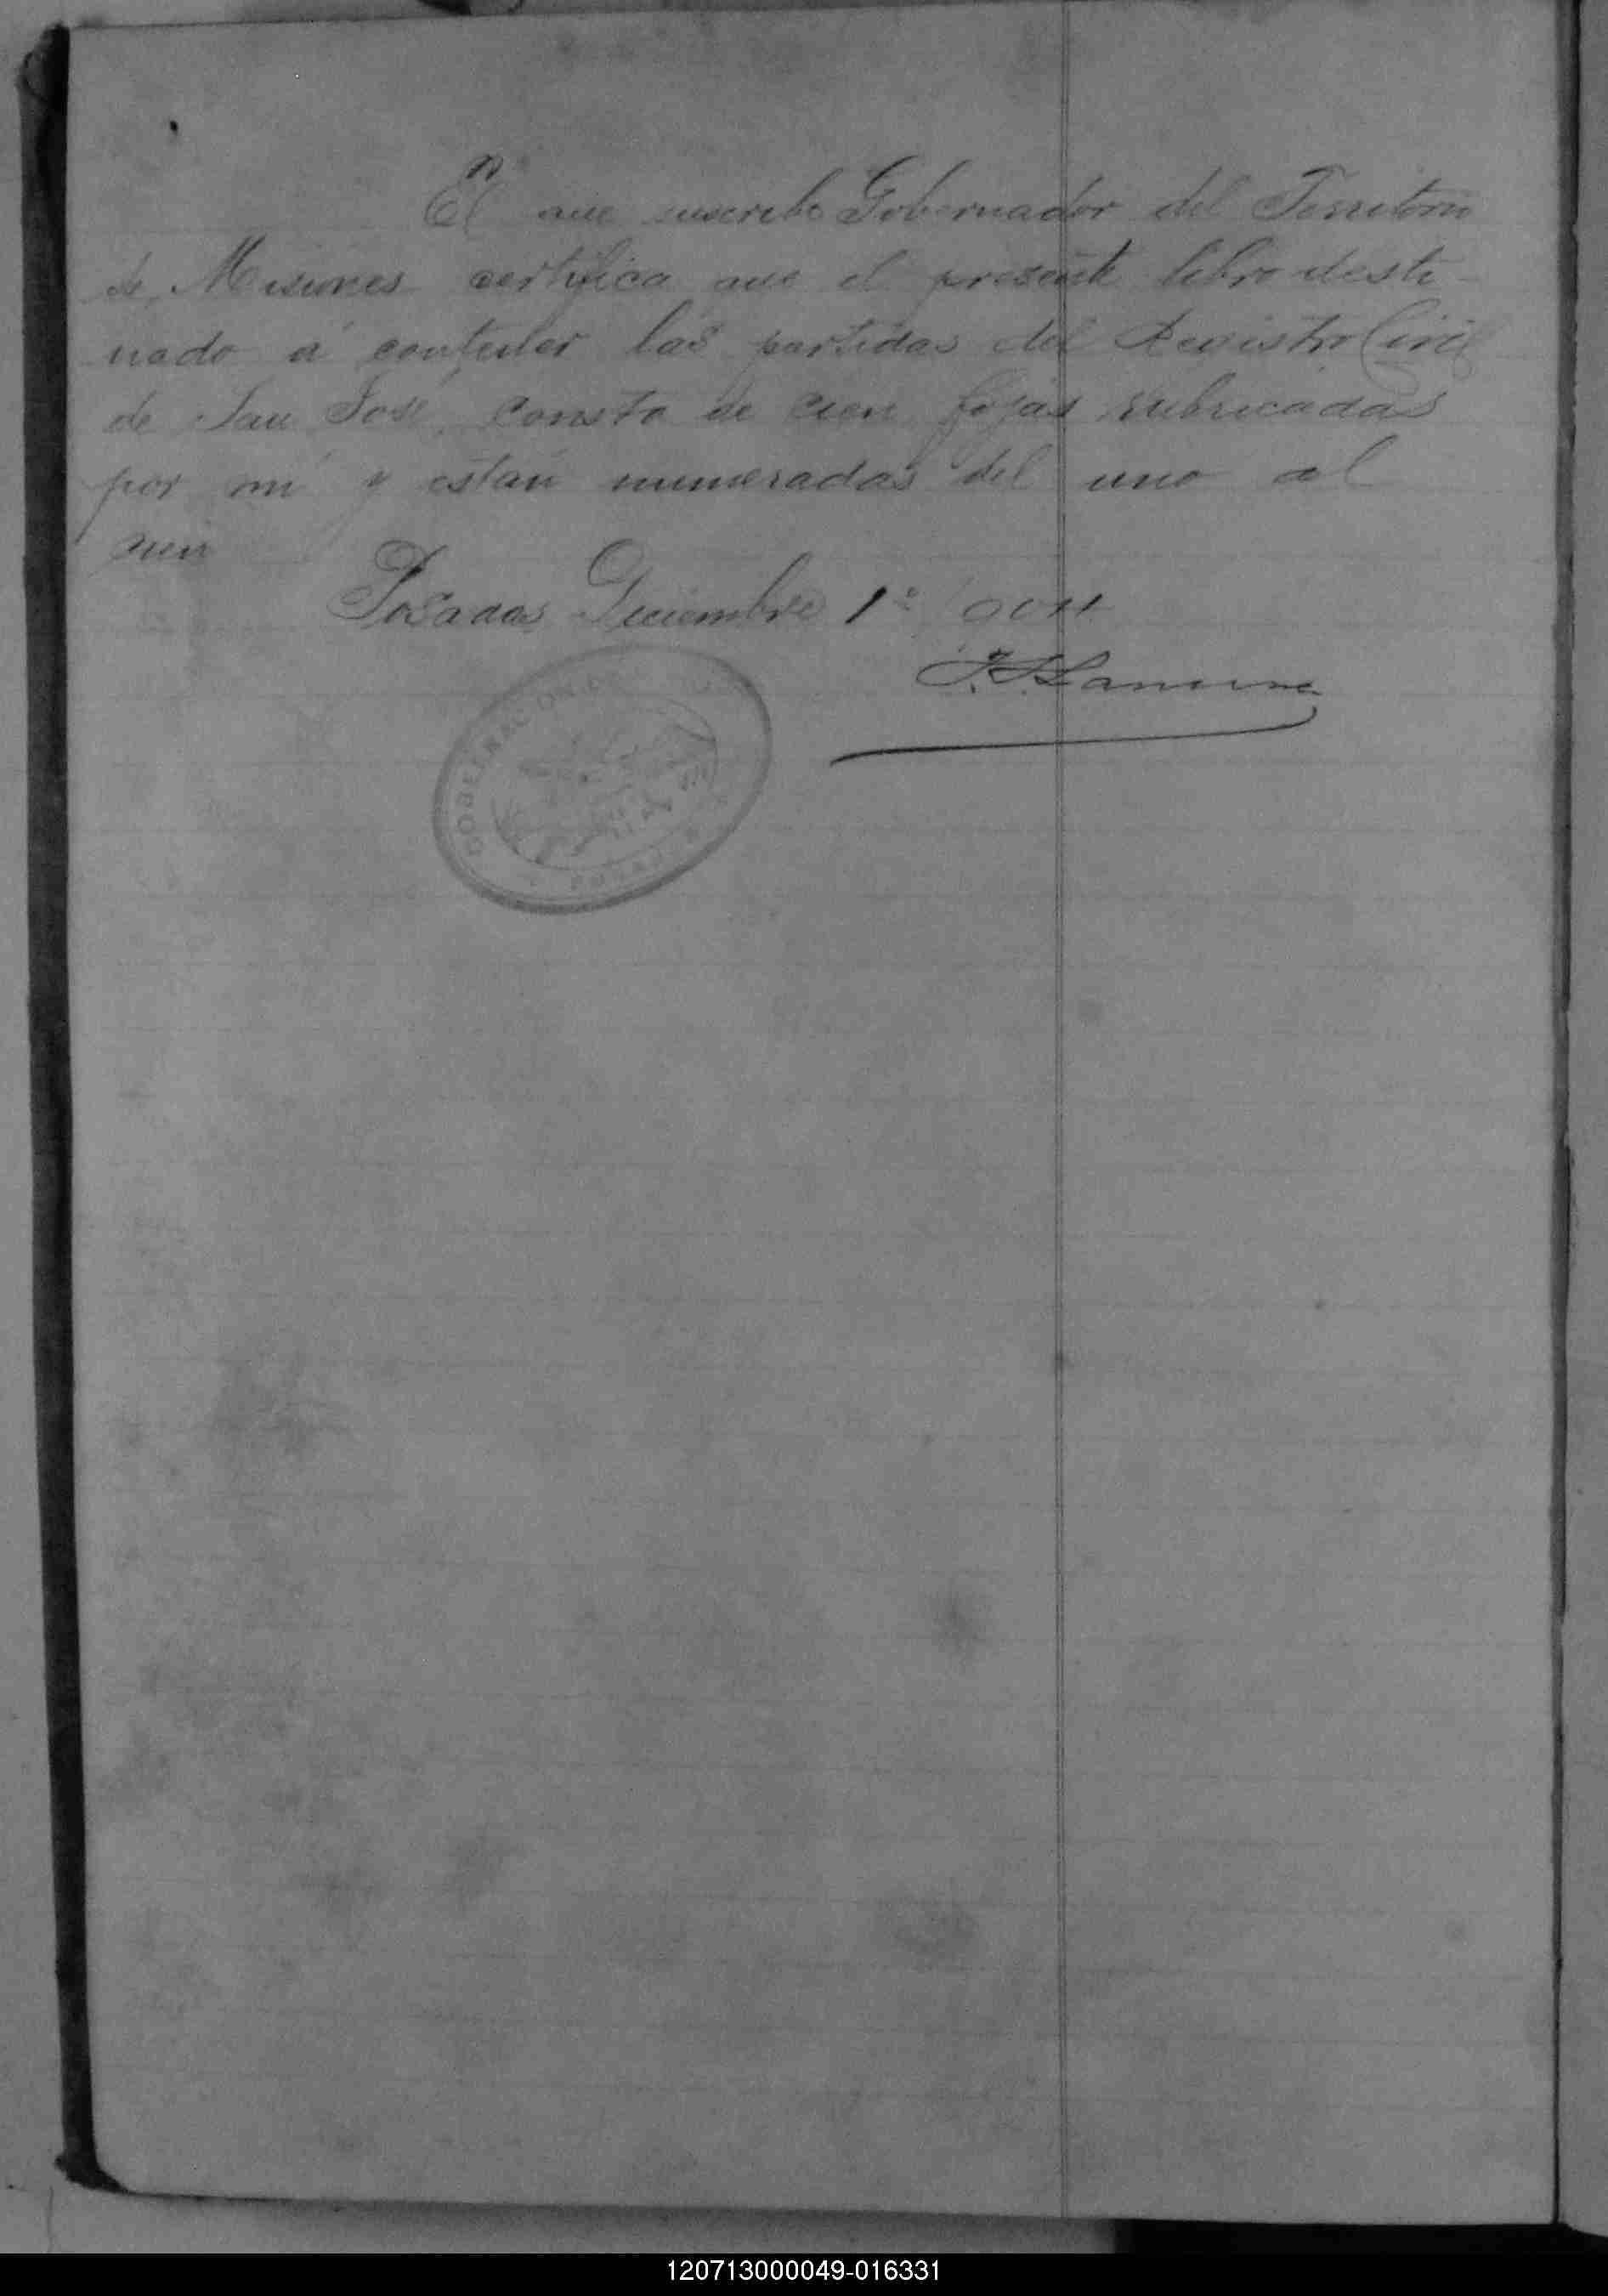 El que suscribe Gobernador del Territorio
de Misiones certifica que el presente libro desti-
nado á contener las partidas del Registro Civil
de San José, consta de cien fojas rubricadas
por mi y estan numeradas del uno al
cien
Posadas Diciembre 1º
J. J. Lanusse
GOBERNACION
120713000049-016331